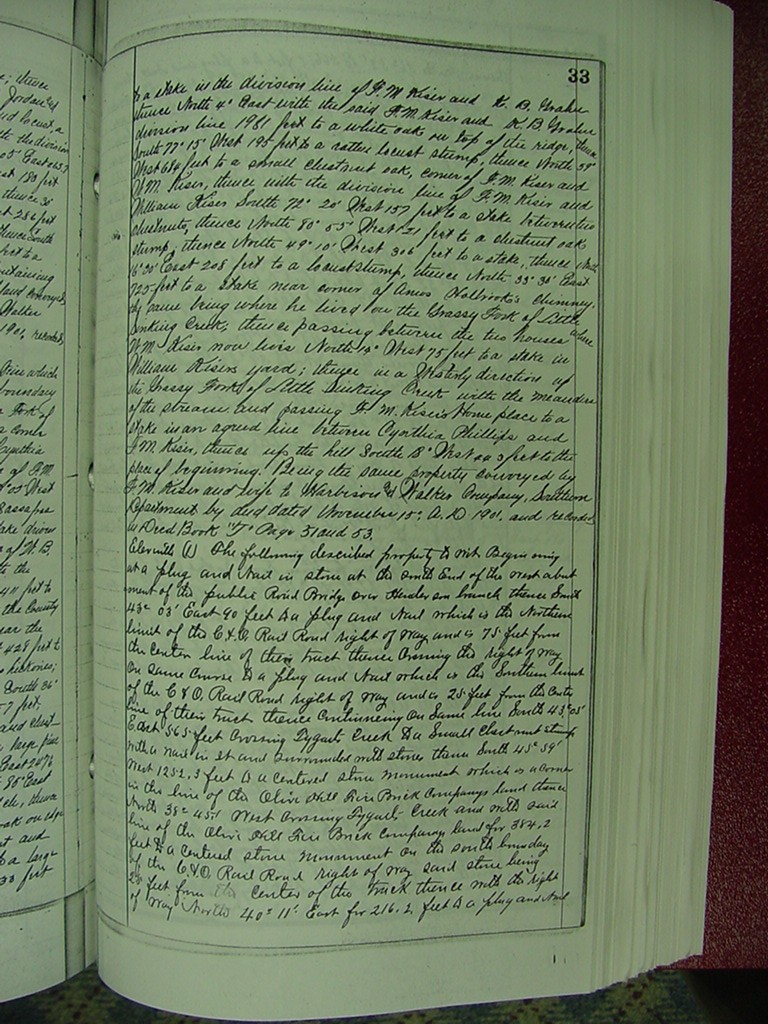 ; thence
Jordan
locust, a
the division
05' East 657
180 feet
thence 38°
286 feet
thence South
feet to a
containing
land conveyed
Walker
1901, recorded
Fire which
boundary
Fork of
corner
Cynthia
of F.M.
05' West
Sassafras
stake driven
of W. B.
to the
411 feet to
the County
near the
428 feet to
hickories;
South 36°
57 feet;
and Chest
large pine
East 2076
85° East
thence
oak on edge
and
to a large
33 feet
33
to a stake in the division line of F. M. Kiser and K. B. Grahn
thence North 4° East with the said F. M. Kiser and K. B. Grahn
division line 1981 feet to a white oak on top of the ridge, thence
South 77° 15' West 195 feet to a rotten locust stump, thence North 59°
West 684 feet to a small chestnut oak, corner of F. M. Kiser and
W. M. Kiser, thence with the division line of F. M. Kiser and
William Kiser South 72° 20' West 157 feet to a stake between two
chestnuts, thence North 80° 55' West 121 feet to a chestnut oak
stump; thence North 49° 10' West 306 feet to a stake, thence North
16° 20' East 208 feet to a locust stump, thence North 33° 30' East
725 feet to a stake near corner of Amos Holbrook's chimney,
the same being where he lived on the Grassy Fork of Little
Sinking Creek, thence passing between the two houses where
W. M. Kiser now lives North 19° West 75 feet to a stake in
William Kisers yard; thence in a Westerly direction up
the Grassy Fork of Little Sinking Creek with the meanders
of the stream and passing F. M. Kiser's Home place to a
stake in an agreed line between Cynthia Phillips and
F. M. Kiser, thence up the hill South 18° West feet to the
place of beginning. Being the same property conveyed by
F. M. Kiser and wife to Harbison & Walker Company, Southern
Department by deed dated November 15th A. D 1901, and recorded
in Deed Book "T" Page 51 and 53.
Eleventh (1) The following described property to wit Beginning
at a plug and Nail in stone at the south End of the west abut
ment of the public Road Bridge over Henderson branch thence South
43° 03' East 90 feet to a plug and Nail which is the Northern
limit of the C. & O. Rail Road right of way and is 75 feet from
the Center line of their tract thence Crossing the right of way
on same Course to a plug and Nail which is the Southern limit
of the C & O. Rail Road right of way and is 25 feet from the Center
line of their tract thence Continuing on Same line South 43° 03'
East 565 feet Crossing Tygarts Creek to a Small Chestnut stump
with a Nail in it and surrounded with stones thence South 45° 59'
West 1252.3 feet to a Centered stone monument which is a Corner
in the line of the Olive Hill Fire Brick Companys land thence
North 38° 45' West Crossing Tygarts Creek and with said
line of the Olive Hill Fire Brick Company land for 384.2
feet to a Centered stone monument on the south boundary
of the C. & O. Rail Road right of way said stone being
25 feet from the Center of the track thence with the right
of way North 40° 11' East for 216.2 feet to a plug and Nail